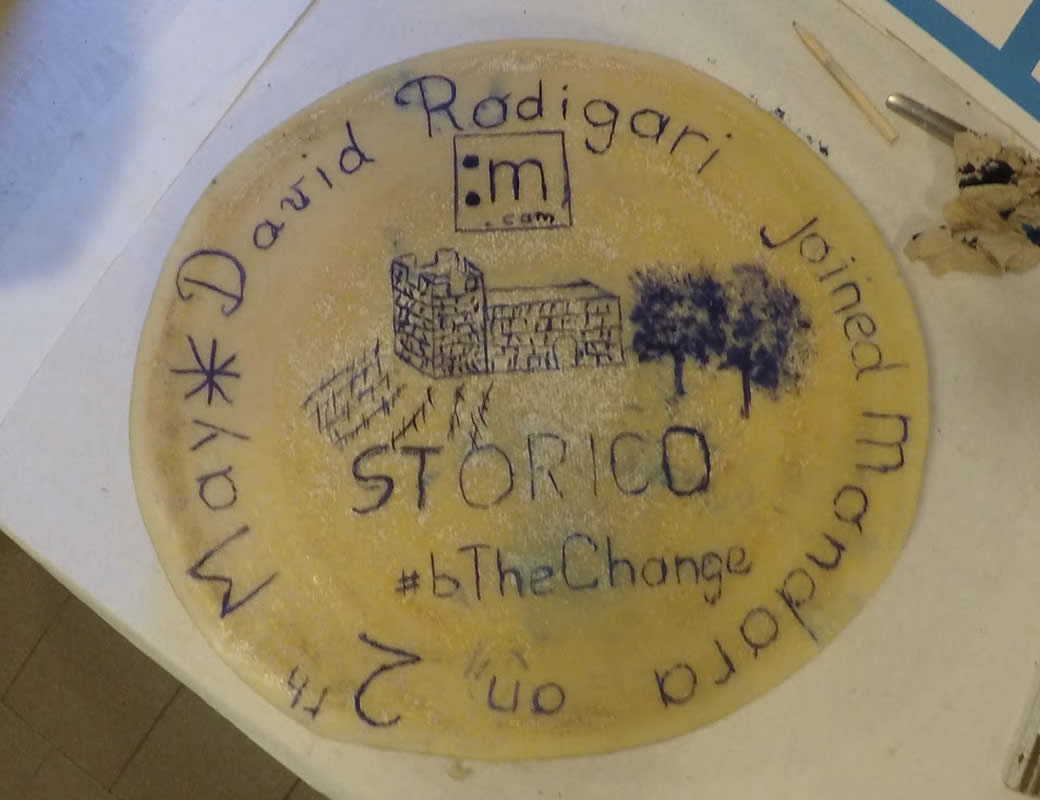 David Rodigari joined Mandara on 2th May *
:m
.com
STORICO
#bTheChange